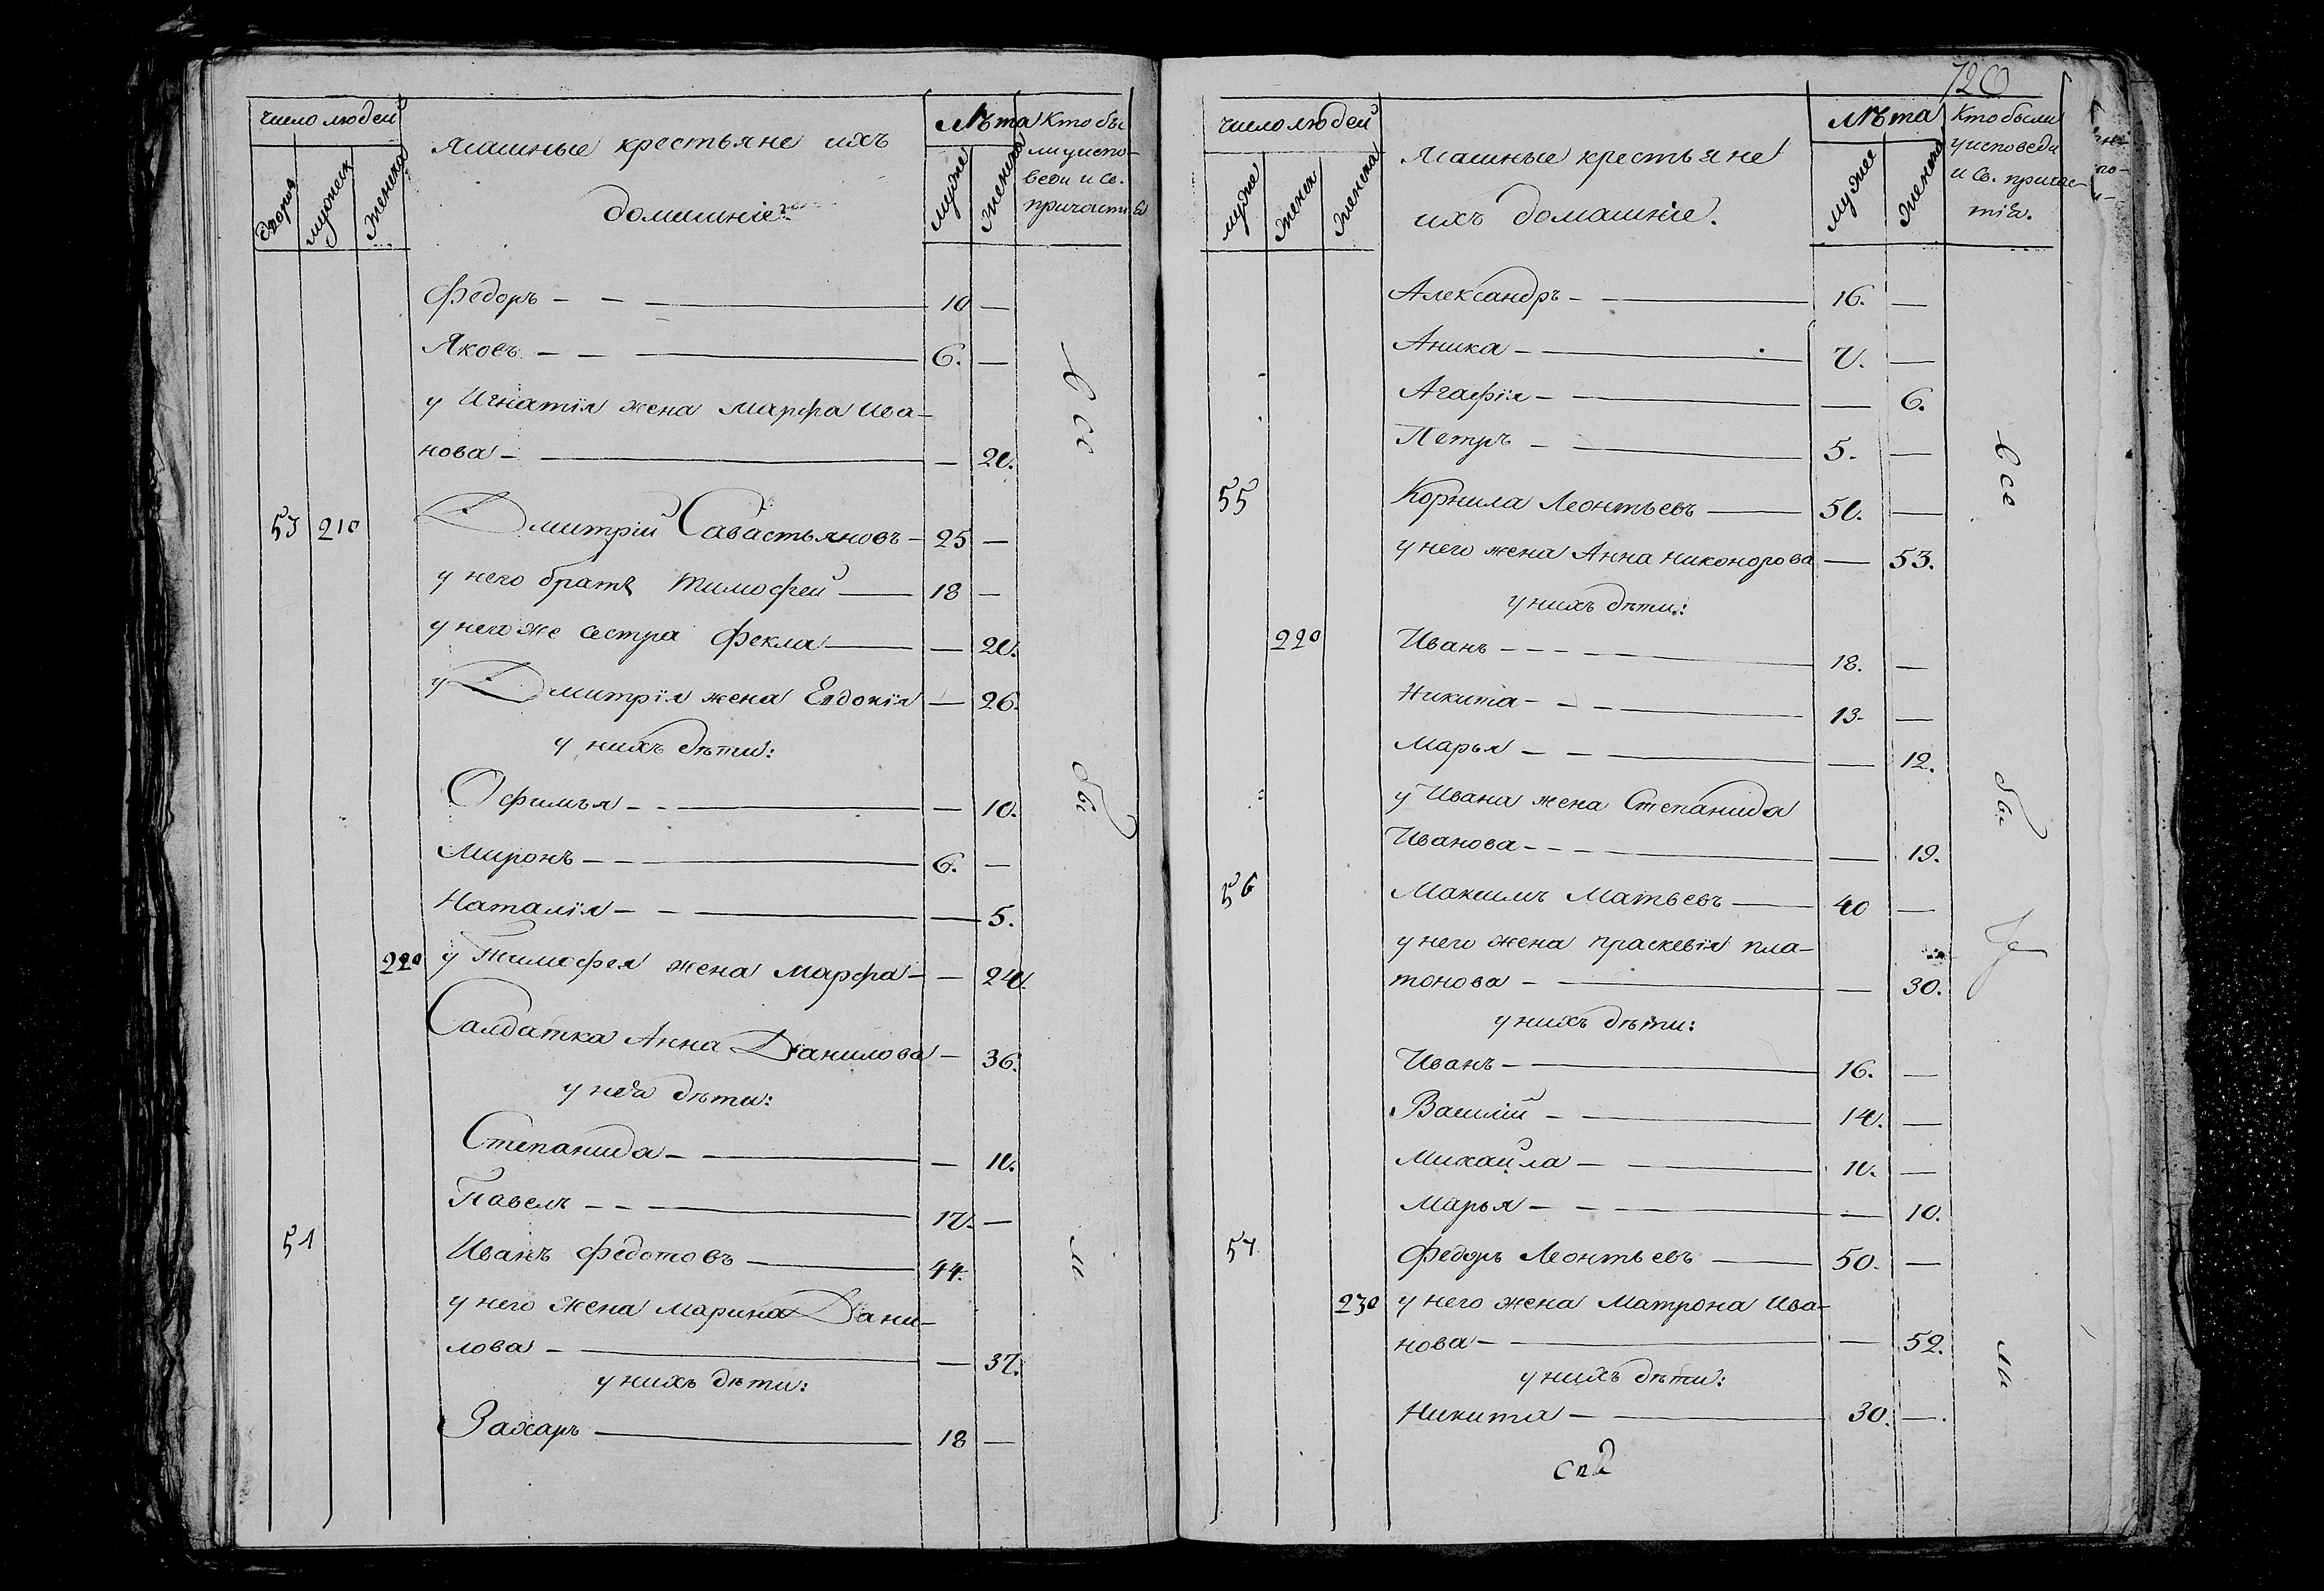 число людей
дворов
мужеск
женска
Ямшные крестьяне ихъ
домашніе
Лѣта
мужие
женска
Кто бы
ли у испо-
веди и св.
причастія
Федоръ - - — 10 —
Яковъ - - — 6. —
у Игнатія жена Марфа Ива-
нова - — — 20.
53 210 Дмитрій Савастьяновъ - 25 —
у него братъ Тимофей — 18 —
у него же сестра Фекла — — 20.
у Дмитрія жена Евдокія — 26.
у нихъ дѣти:
Офимья - - — — 10.
Миронъ - - — 6. —
Наталія - - — — 5.
220 у Тимофея жена Марфа - — 24.
Салдатка Анна Данилова — 36.
у нея дѣти:
Степанида - — — 11.
Павелъ - - — 17. —
54 Иванъ Федотовъ — 44.
у него жена Марина Дани-
лова - — — 37.
у нихъ дѣти:
Захаръ — 18 —
все
бы
ли
720
число людей
мужие
женск
женска
Ямшные крестьяне
ихъ домашніе.
Лѣта
мужие
женска
Кто были
у исповеди
и св. причас-
тія.
Александръ - — 16. —
Аника - — 7. —
Агафія - — — 6.
Петръ - — 5. —
55 Корнила Леонтьевъ — 50. —
у него жена Анна Никонорова — 53.
у нихъ дѣти:
220 Иванъ - - - — 18. —
Никита - - - — 13. —
Марья - - — — 12.
у Ивана жена Степанида
Иванова - - - — — 19.
56 Максимъ Матвевъ — 40 —
у него жена Праскевія Пла-
тонова - — — 30.
у нихъ дѣти:
Иванъ - — 16. —
Василій - — 14. —
Михайла - — 11. —
Марья - - — — 10.
57 Федоръ Леонтьевъ — 50. —
230 у него жена Матрона Ива-
нова - — — 52.
у нихъ дѣти:
Никита - — 30. —
все
бы
ли